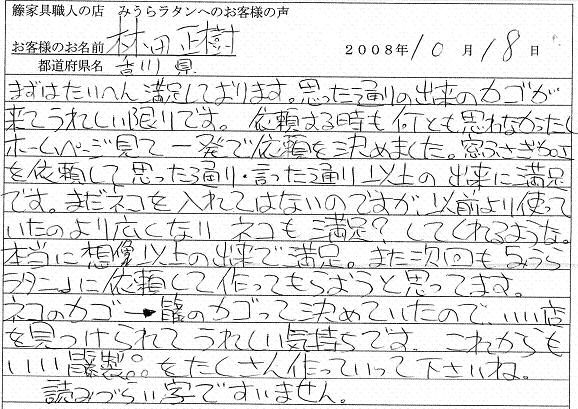 籐家具職人の店　みうらラタンへのお客様の声
お客様のお名前 林田 正樹　2008年10月18日
都道府県名 香川県
まずはたいへん満足しております。思った通りの出来のカゴが
来てうれしい限りです。依頼する時も何とも思わなかったし
ホームページ見て一発で依頼を決めました。窓ふさぎ
を依頼して思った通り・言った通り以上の出来に満足
です。まだネコを入れてはないのですが、以前より使って
いたのより広くなりネコも満足?してくれるような。
本当に想像以上の出来で満足。また次回も「みうら
ラタン」に依頼して作ってもらおうと思ってます。
ネコのカゴ→籐のカゴって決めていたので、いい店
を見つけられてうれしい気持ちです。これからも
いい籐製品をたくさん作っていって下さいね。
読みづらい字ですいません。